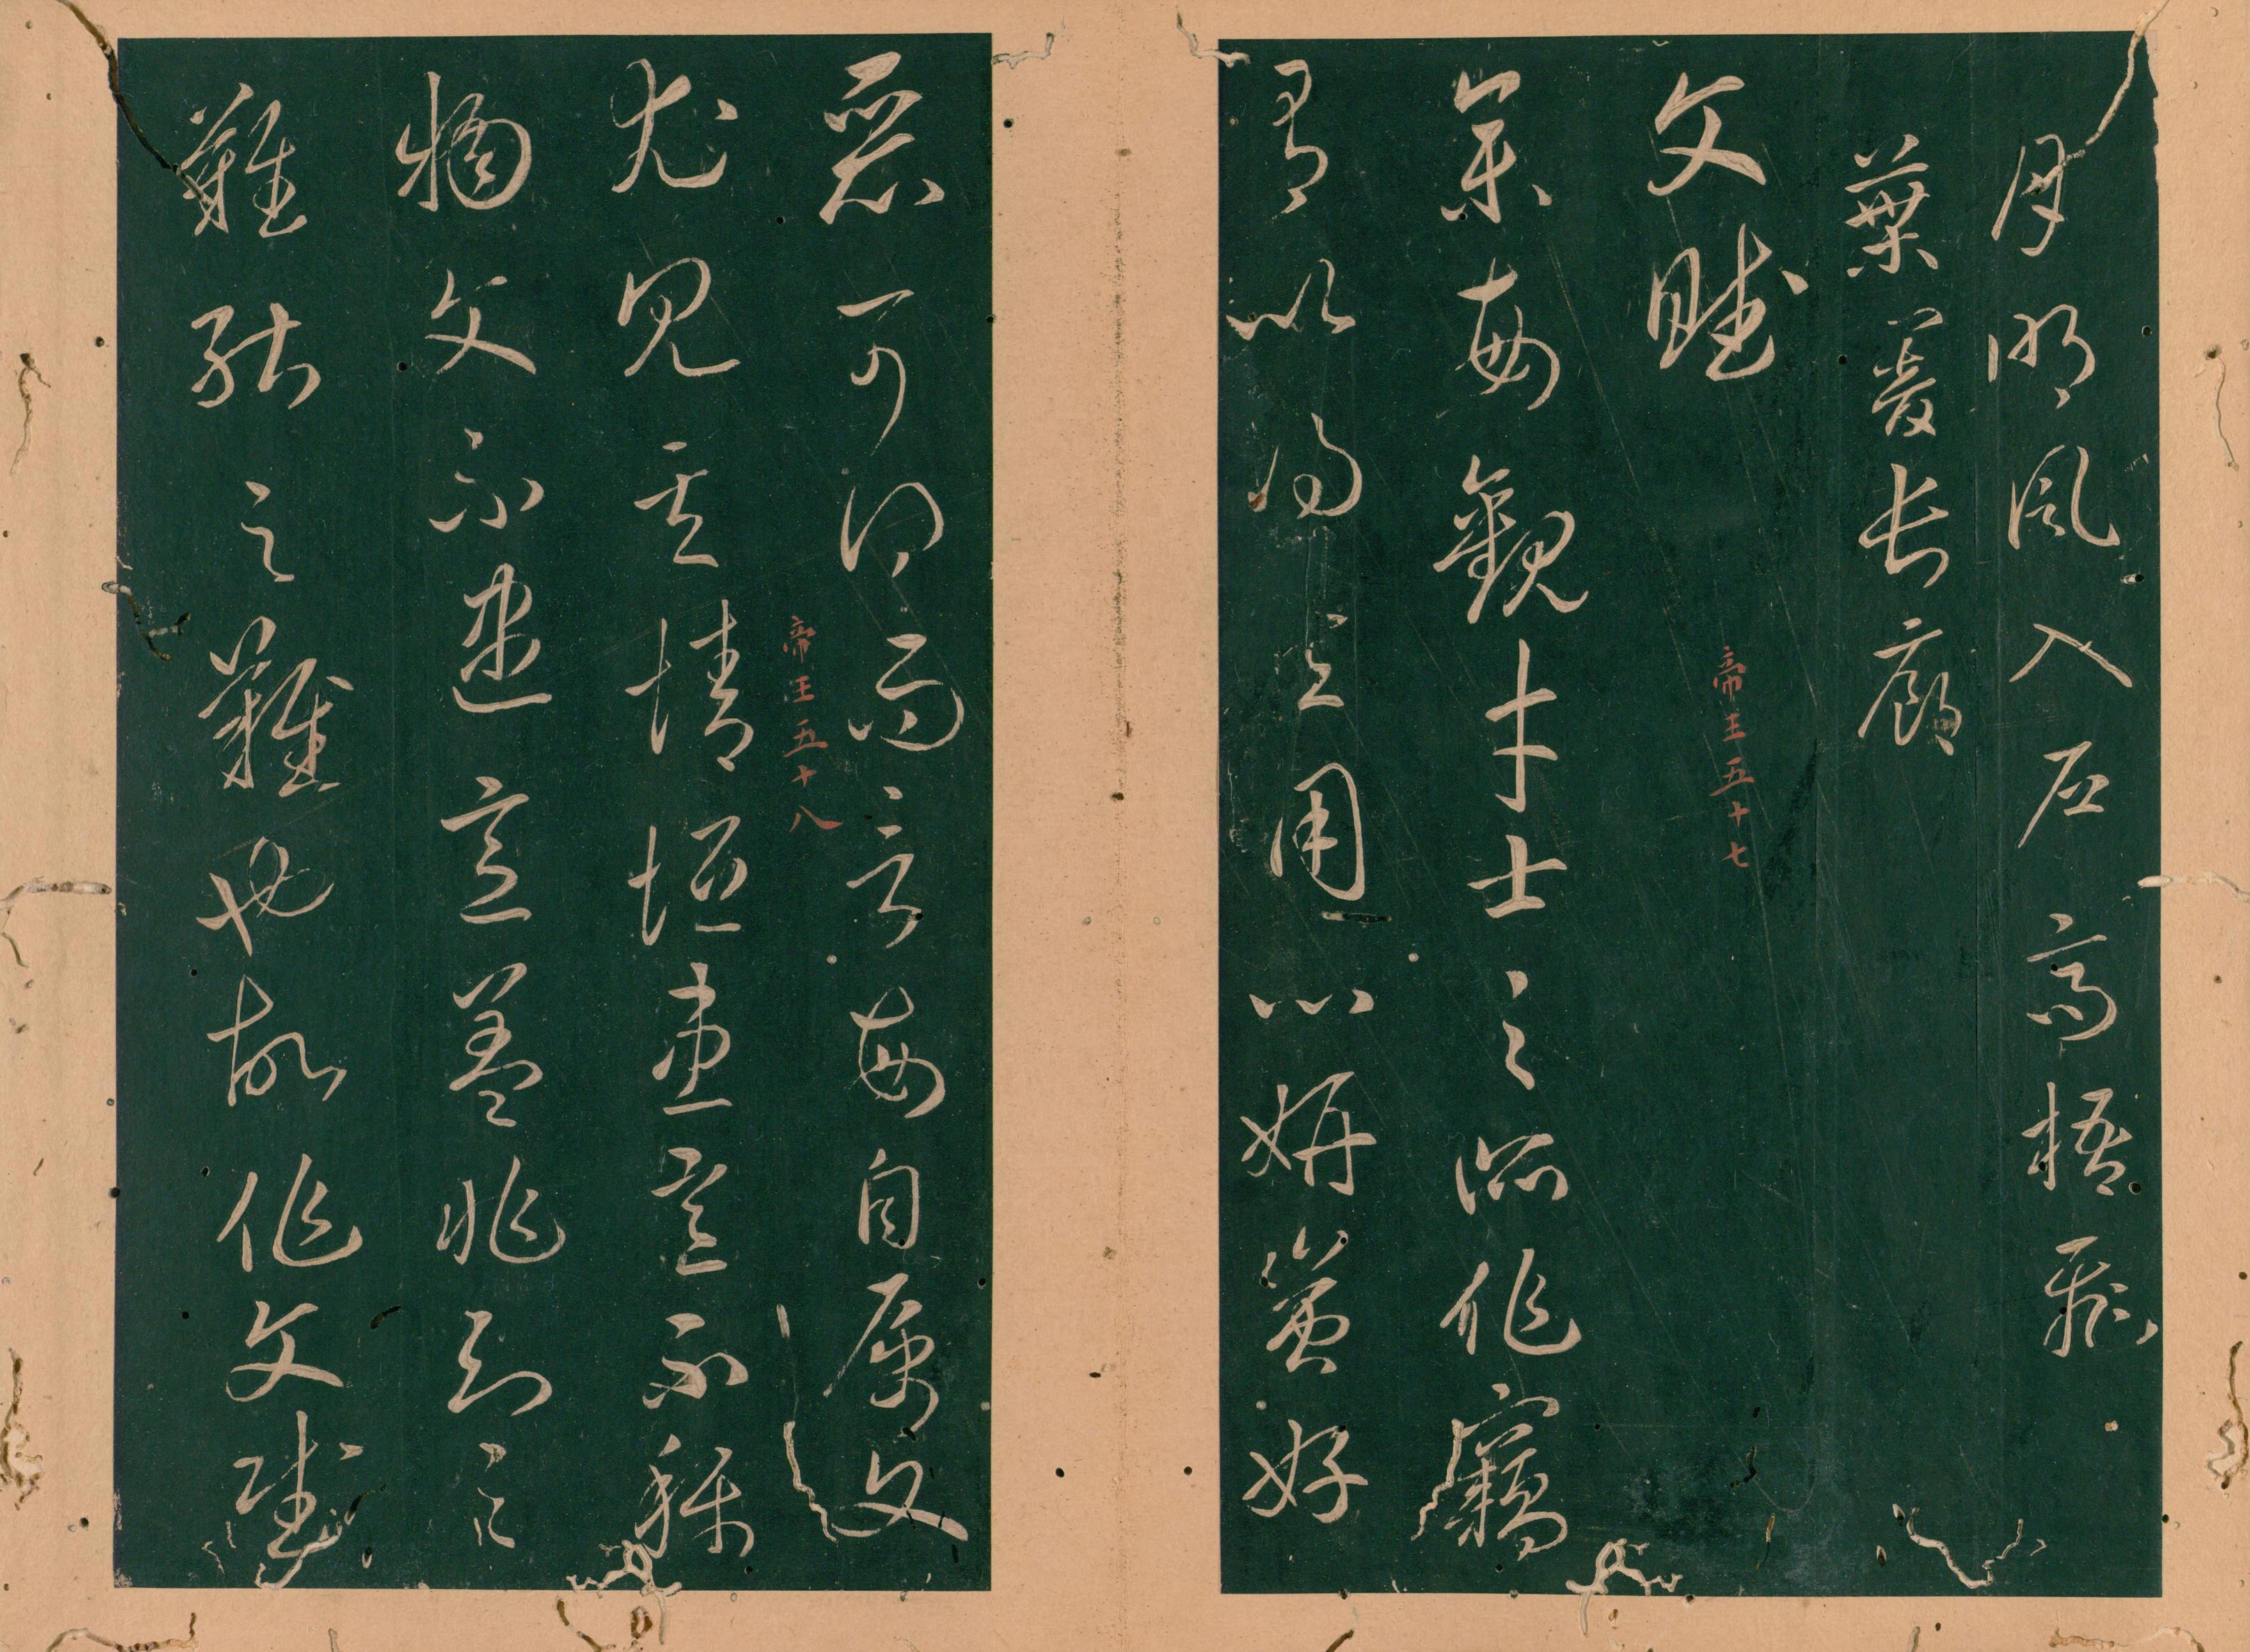 月明風入戶高梧飛
葉長廊
文賦
帝王五十七
余每觀才士之所作竊
有以得其用心妍蚩好
惡可得而言每自屬文
帝王五十八
尤見其情恒患意不稱
物文不逮意蓋非知之
難能之難也故作文賦